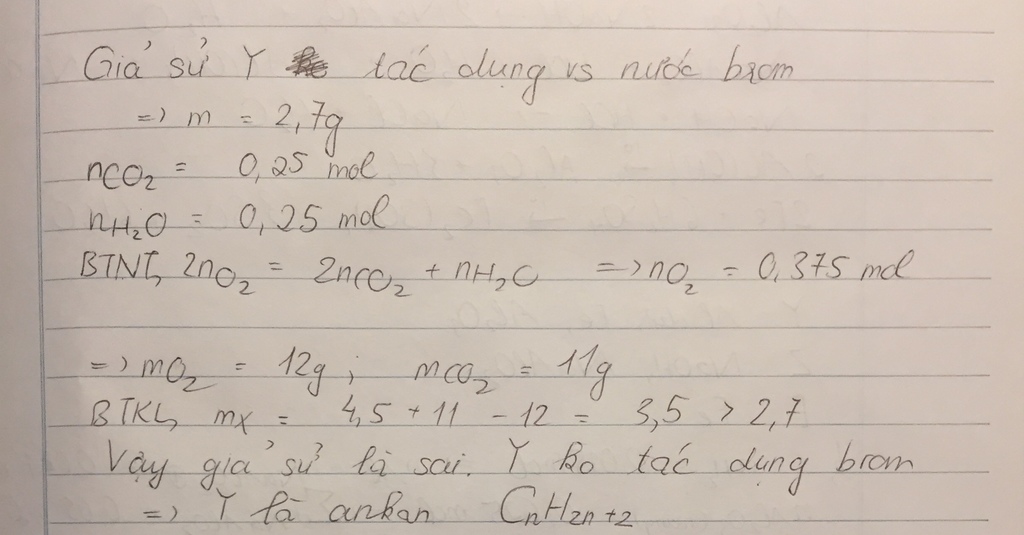 Giả sử Y tác dụng vs nước brom
=> m = 2,7g
nCO₂ = 0,25 mol
nH₂O = 0,25 mol
BTNT, 2nO₂ = 2nCO₂ + nH₂O => nO₂ = 0,375 mol
=> mO₂ = 12g ; mCO₂ = 11g
BTKL, mX = 4,5 + 11 - 12 = 3,5 > 2,7
Vậy giả sử là sai. Y ko tác dụng brom
=> Y là ankan CnH2n+2